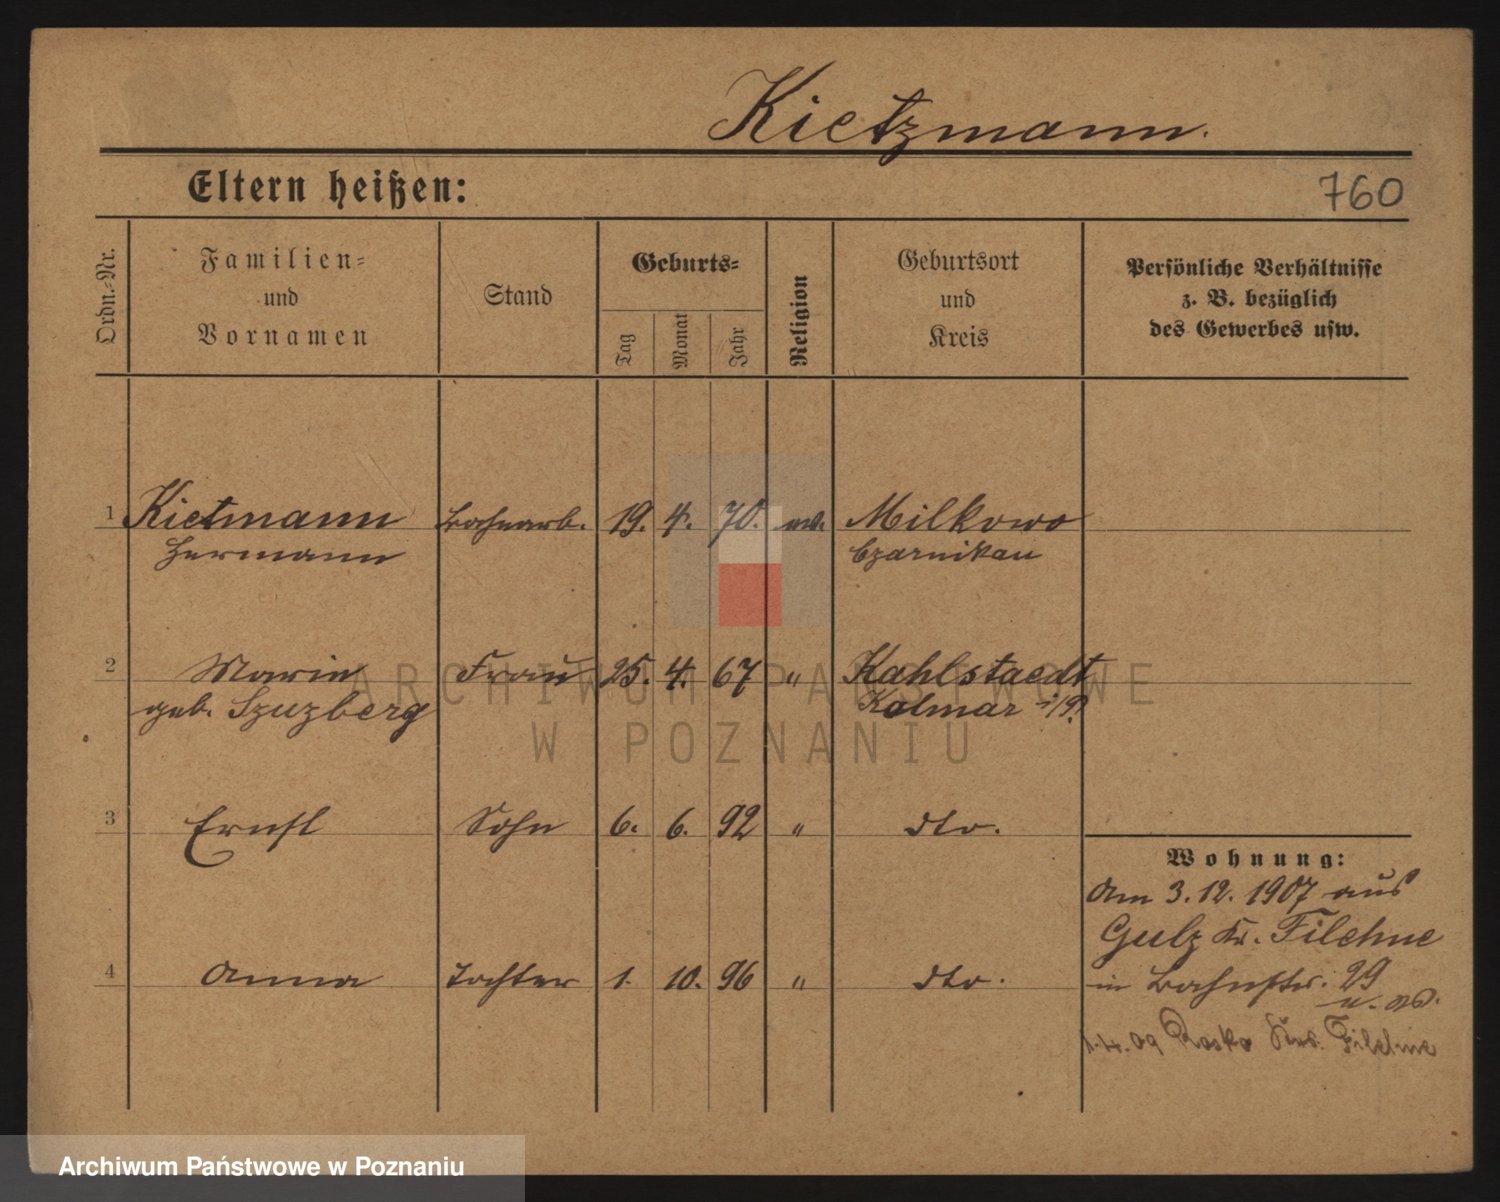 Kietzmann.
Eltern heißen:
760
Ordn.-Nr.
Familien-
und
Vornamen
Stand
Geburts-
Tag
Monat
Jahr
Religion
Geburtsort
und
Kreis
Persönliche Verhältnisse
z. B. bezüglich
des Gewerbes usw.
1 Kietmann Bahnarb. 19. 4. 70. ev. Milkowo
Hermann Czarnikau
2 Marie Frau 25. 4. 67 " Kahlstaedt
geb. Szuzberg Kolmar i/P.
3 Ernst Sohn 6. 6. 92 " dto.
4 Anna Tochter 1. 10. 96 " dto.
Wohnung:
Am 3.12.1907 aus
Gulz Kr. Filehne
in Bahnstr. 29
1.4.09 Rosko Filehne
ARCHIWUM PAŃSTWOWE
W POZNANIU
Archiwum Państwowe w Poznaniu